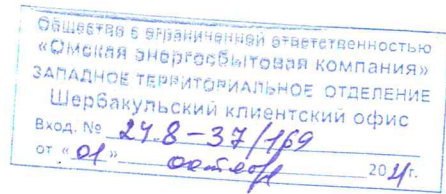 Общество с ограниченной ответственностью
«Омская энергосбытовая компания»
ЗАПАДНОЕ ТЕРРИТОРИАЛЬНОЕ ОТДЕЛЕНИЕ
Шербакульский клиентский офис
Вход. № 24.8-37/169
от «01» октября 2021г.